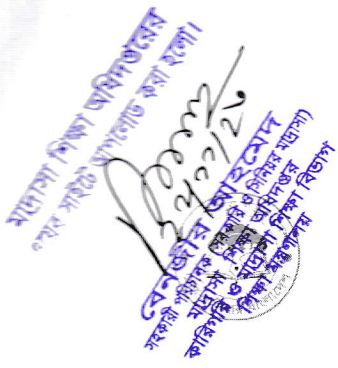 মাদ্রাসা শিক্ষা অধিদপ্তরের
ওয়েব সাইটে আপলোড করা হলো।
বেনজীর আহমেদ
সহকারী পরিচালক (সরকারি ও সিনিয়র মাদ্রাসা)
মাদ্রাসা শিক্ষা অধিদপ্তর
কারিগরি ও মাদ্রাসা শিক্ষা বিভাগ
শিক্ষা মন্ত্রণালয়